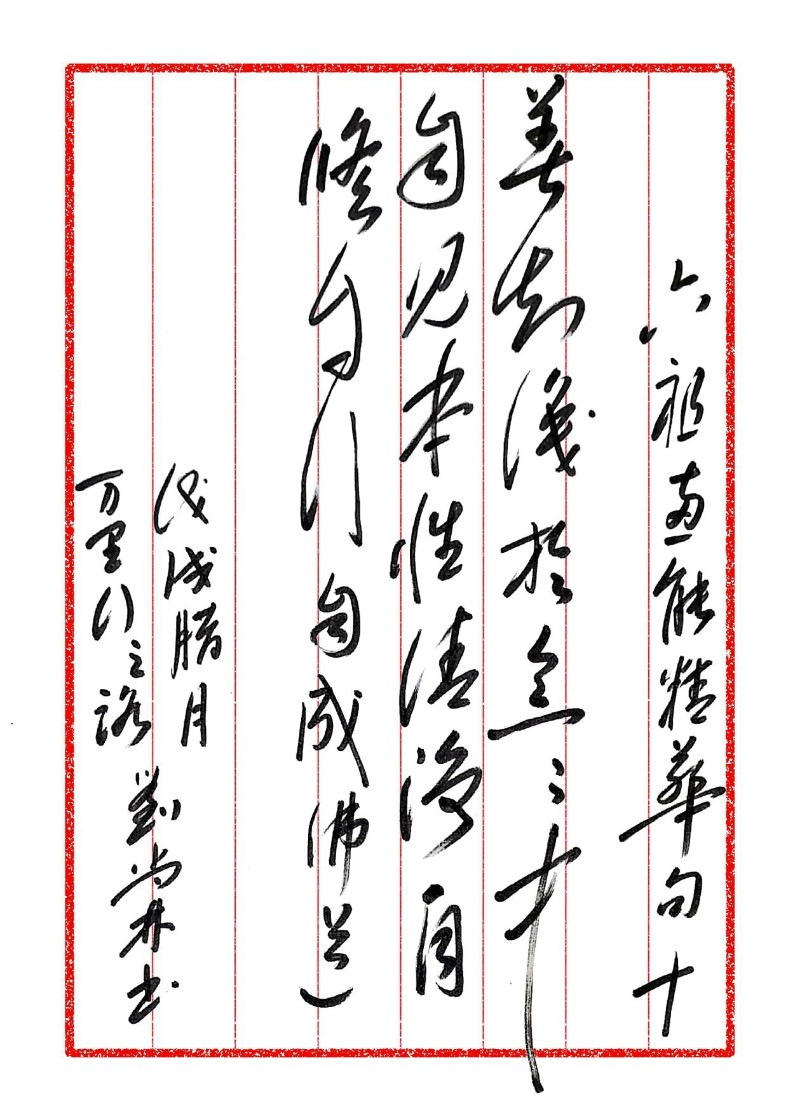 六祖惠能精華句十
善知識於念念中
自見本性清淨自
修自行自成佛道
戊戌腊月
万里行之路
劉尚林书